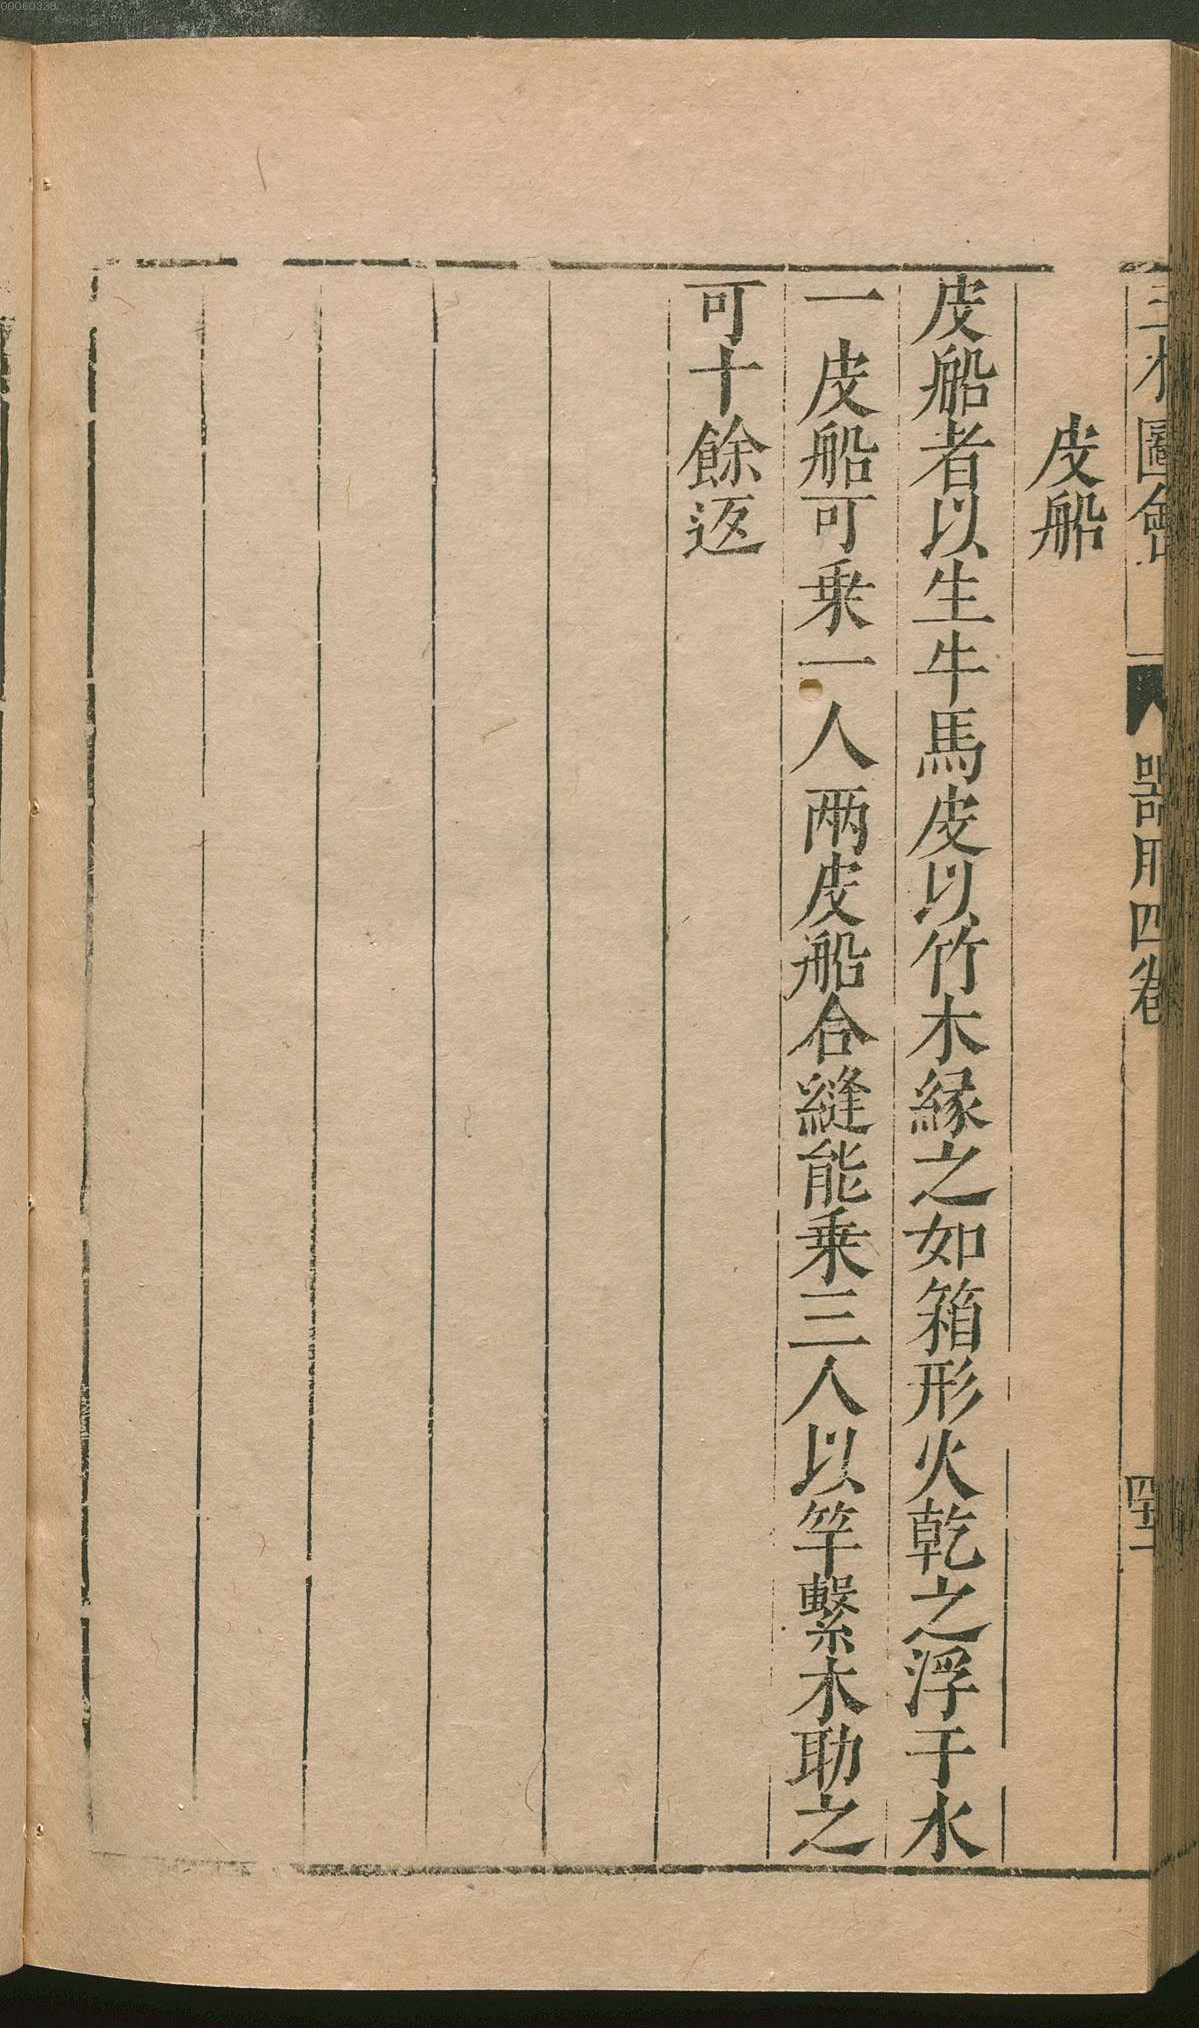 三才圖會
器用四卷
四十二
皮船
皮船者以生牛馬皮以竹木緣之如箱形火乾之浮于水
一皮船可乗一人兩皮船合縫能乗三人以竿繫木助之
可十餘返
00060338